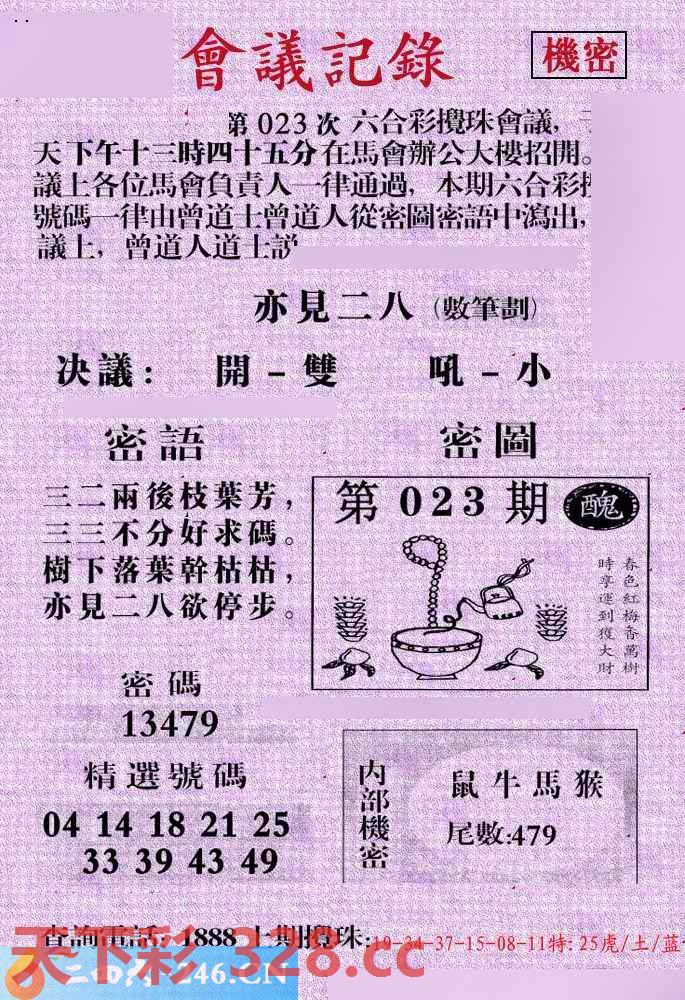 會議記錄
機密
第 023 次 六合彩攪珠會議，
天下午十三時四十五分在馬會辦公大樓招開。
議上各位馬會負責人一律通過，本期六合彩
號碼一律由曾道士曾道人從密圖密語中瀉出，
議上，曾道人道士説
亦見二八（數筆劃）
决議： 開－雙 吼－小
密語
三二兩後枝葉芳，
三三不分好求碼。
樹下落葉幹枯枯，
亦見二八欲停步。
密圖
第 023 期 醜
春色紅梅香萬樹
時享運到獲大財
密碼
13479
精選號碼
04 14 18 21 25
33 39 43 49
内部機密
鼠牛馬猴
尾數:479
查詢電話: 1888 上期攪珠:19-34-37-15-08-11特: 25虎/土/蓝
天下彩 328.cc
246.CN